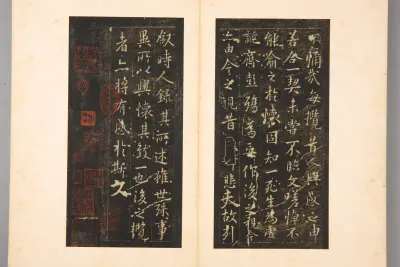 不痛哉每攬昔人興感之由
若合一契未嘗不臨文嗟悼不
能喻之於懷固知一死生為虛
誕齊彭殤為妄作後之視今
亦由今之視昔悲夫故列
敘時人錄其所述雖世殊事
異所以興懷其致一也後之攬
者亦將有感於斯文